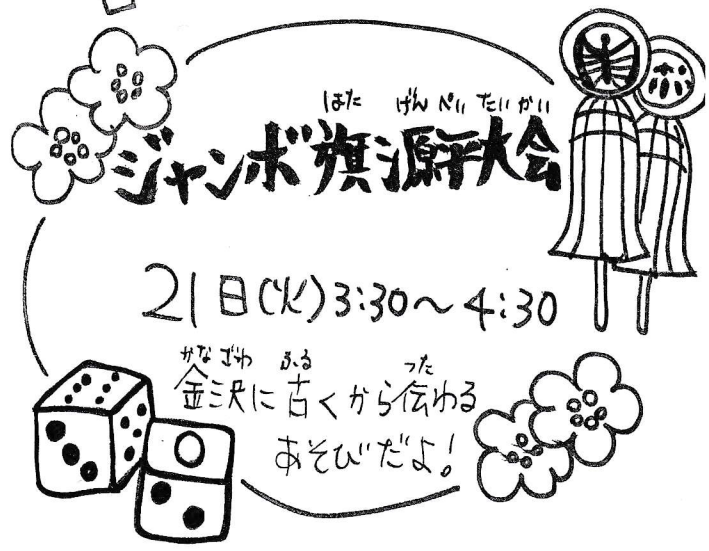 はた げんぺいたいかい
ジャンボ旗源平大会
21日(火)3:30〜4:30
かなざわ ふる つた
金沢に古くから伝わる
あそびだよ!